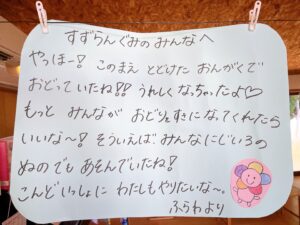 すずらんぐみのみんなへ
やっほー！このまえ とどけた おんがくで
おどっていたね！！うれしくなっちゃったよ♡
もっと みんなが おどりょすきになってくれたら
いいな～！そういえば みんなにじいろの
ぬのでもあそんでいたね！
こんどいっしょに わたしもやりたいな～。
ふらわより